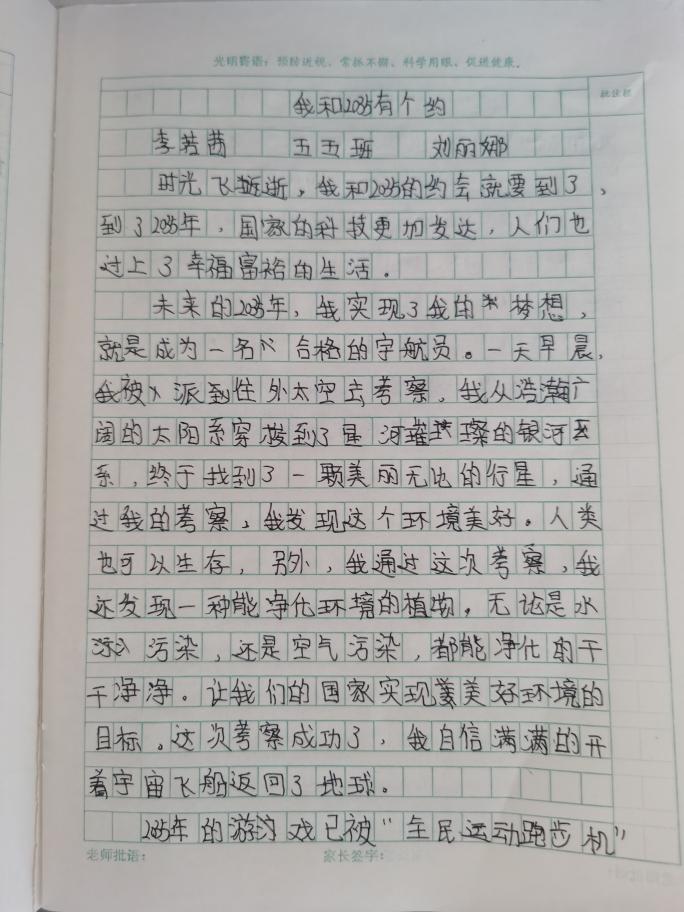 光明寄语：预防近视、常抓不懈、科学用眼、促进健康。
批注栏
我和2035有个约
李若茜 五五班 刘丽娜
时光飞逝，我和2035的约会就要到了，
到了2035年，国家的科技更加发达，人们也
过上了幸福富裕的生活。
未来的2035年，我实现了我的梦想，
就是成为一名合格的宇航员。一天早晨，
我被派到外太空去考察，我从浩瀚广
阔的太阳系穿拨到了星河璀璨的银河
系，终于找到了一颗美丽无比的行星，通
过我的考察，我发现这个环境美好。人类
也可以生存，另外，我通过这次考察，我
还发现一种能净化环境的植物，无论是水
污染，还是空气污染，都能净化的干
干净净。让我们的国家实现美好环境的
目标。这次考察成功了，我自信满满的开
着宇宙飞船返回了地球。
2035年的游戏已被“全民运动跑步机”
老师批语： 家长签字：